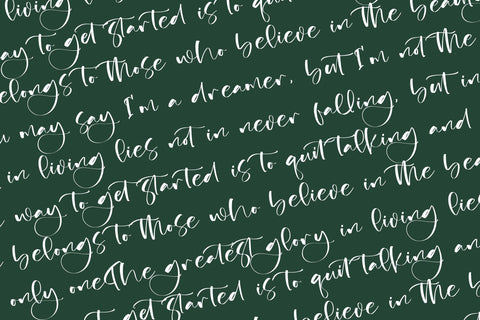 living lies not in
way to get started is to quit
belongs to those who believe in the beau
u may say I'm a dreamer, but I'm not the
in living lies not in never falling, but in
way to get started is to quit talking and
belongs to those who believe in the beau
only one The greatest glory in living lies
to get started is to quit talking an
who believe in the b